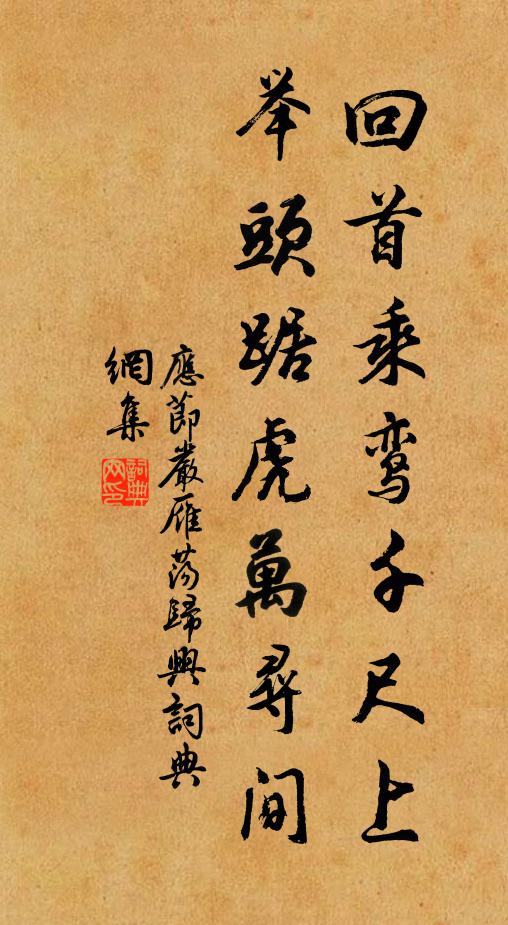 回首乘鸾千尺上
举頭踞虎萬尋间
應節嚴雁蕩歸興詞典
網集
詞典
网印